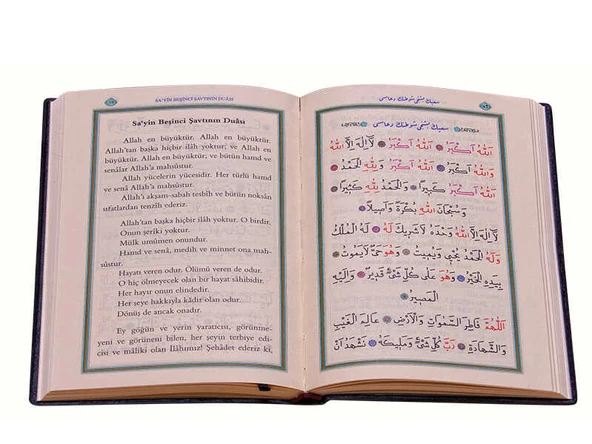 SA'YİN BEŞİNCİ ŞAVTININ DUÂSI
Sa'yin Beşinci Şavtının Duâsı
Allah en büyüktür. Allah en büyüktür.
Allah'tan başka hiçbir ilâh yoktur, ve Allah en
büyüktür. Allah en büyüktür; ve bütün hamd ve
senâlar Allah'a mahsûstur.
Allah yücelerin yücesidir. Her türlü hamd
ve senâ Allah'a mahsûstur.
Allah'a akşam-sabah tesbîh ve bütün noksân
sıfatlardan tenzîh ederiz.
Allah'tan başka hiçbir ilâh yoktur. O birdir.
Onun şerîki yoktur.
Mülk umûmen onundur.
Hamd ve senâ, medih ve minnet ona mah-
sûstur.
Hayatı veren odur. Ölümü veren de odur.
O hiç ölmeyecek olan bir hayat sâhibidir.
Her hayır onun elindedir.
Her şeye hakkıyla kâdir olan odur.
Dönüş de ancak onadır.
Ey göğün ve yerin yaratıcısı, görünme-
yeni ve görüneni bilen, her şeyin terbiye edi-
cisi ve mâliki olan İlâhımız! Şehâdet ederiz ki,
سعيك بشنجى شوطنك دعاسى
سعيك بشنجى شوطنك دعاسى
اَللّٰهُ اَكْبَرُ اَللّٰهُ اَكْبَرُ لَٓا اِلٰهَ اِلَّا اللّٰهُ
وَاللّٰهُ اَكْبَرُ اَللّٰهُ اَكْبَرُ وَلِلّٰهِ الْحَمْدُ
اَللّٰهُ اَكْبَرُ كَبِيرًا وَالْحَمْدُ لِلّٰهِ كَثِيرًا
وَسُبْحَانَ اللّٰهِ بُكْرَةً وَاَصِيلًا
لَٓا اِلٰهَ اِلَّا اللّٰهُ وَحْدَهُ لَا شَرِيكَ لَهُ لَهُ الْمُلْكُ
وَلَهُ الْحَمْدُ يُحْيِي وَيُمِيتُ وَهُوَ حَيٌّ لَا يَمُوتُ
بِيَدِهِ الْخَيْرُ وَهُوَ عَلٰى كُلِّ شَيْءٍ قَدِيرٌ وَاِلَيْهِ
الْمَصِيرُ
اَللّٰهُمَّ فَاطِرَ السَّمٰوَاتِ وَالْاَرْضِ عَالِمَ الْغَيْبِ
وَالشَّهَادَةِ رَبَّ كُلِّ شَيْءٍ وَمَلِيكَهُ نَشْهَدُ اَنْ